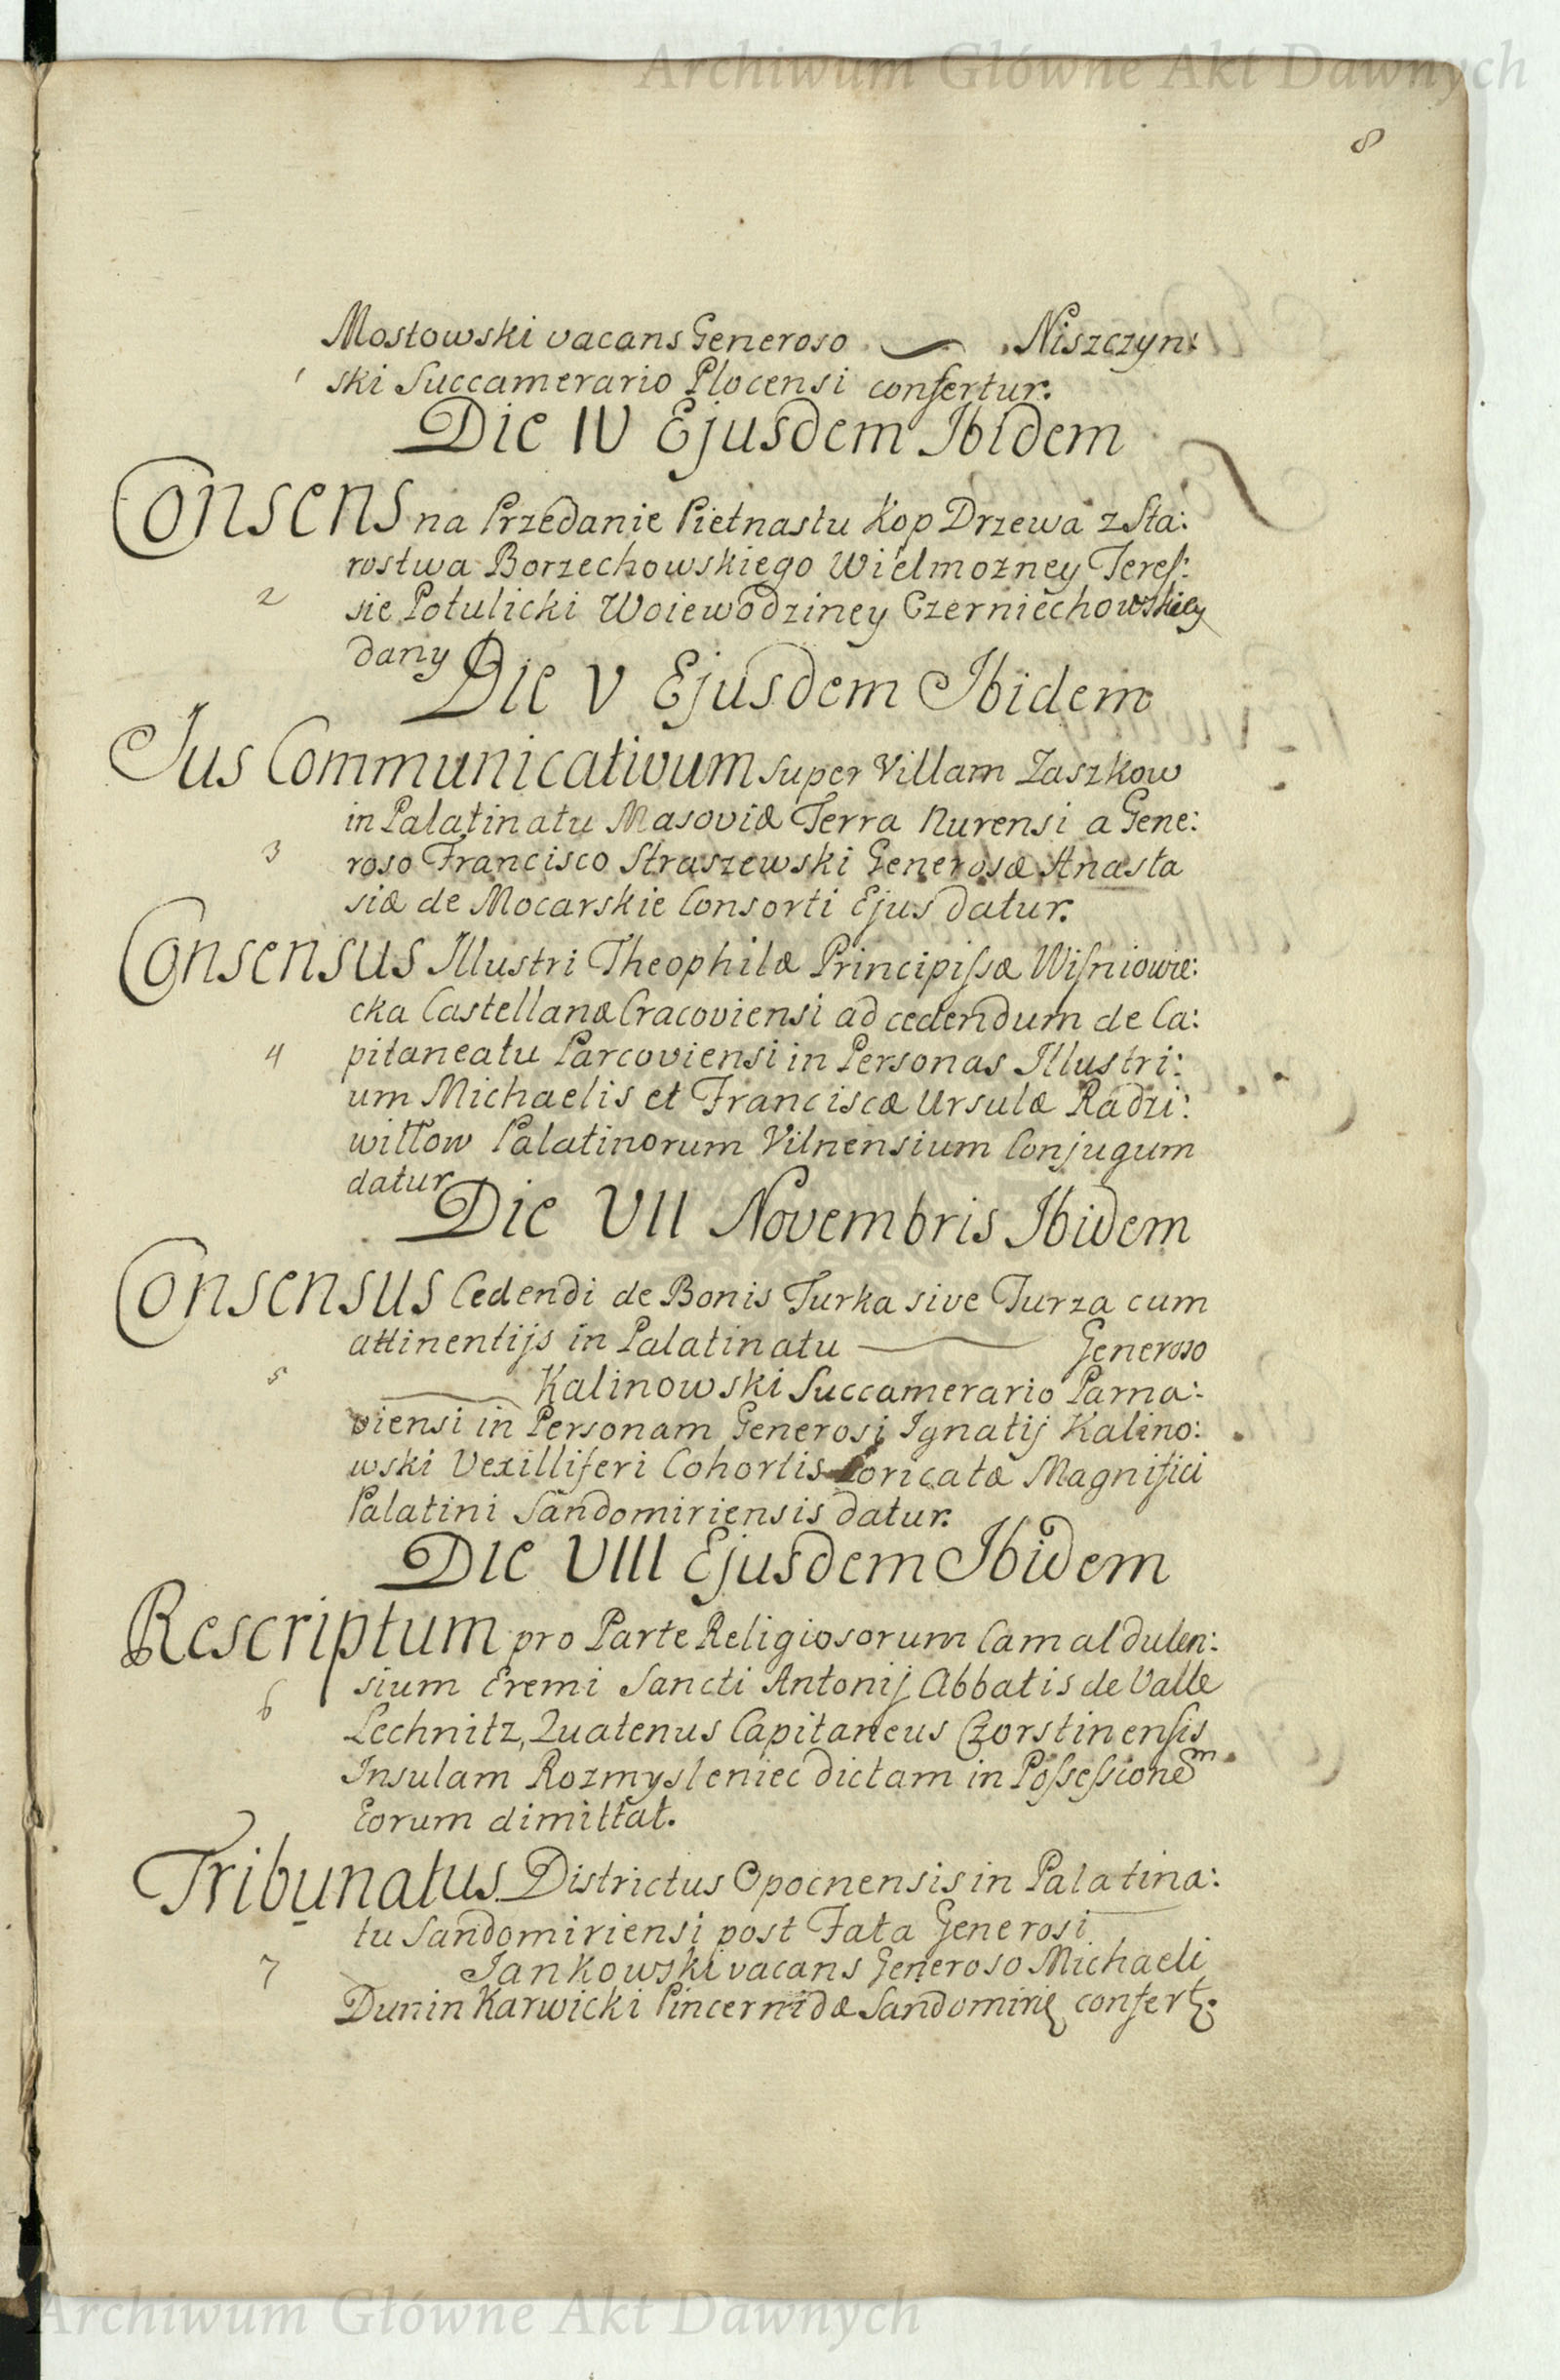 Archiwum Główne Akt Dawnych
8
Mostowski vacans Generoso Niszczyn:
1 ski Succamerario Plocensi confertur.
Die IV Ejusdem Ibidem
Consens na Przedanie Pietnastu Kop Drzewa z Sta:
rostwa Borzechowskiego Wielmozney Teres:
2 sie Potulicki Woiewodziney Czerniechowskiey
dany
Die V Ejusdem Ibidem
Jus Communicativum super Villam Zaszkow
in Palatinatu Masoviæ Terra Nurensi a Gene:
3 roso Francisco Straszewski Generosæ Anasta
siæ de Mocarskie Consorti Ejus datur.
Consensus Illustri Theophilæ Principissæ Wisniowie:
cka Castellanæ Cracoviensi ad cedendum de Ca:
4 pitaneatu Parcoviensi in Personas Illustri:
um Michaelis et Franciscæ Ursulæ Radzi:
willow Palatinorum Vilnensium Conjugum
datur
Die VII Novembris Ibidem
Consensus Cedendi de Bonis Turka sive Turza cum
attinentijs in Palatinatu Generoso
5 Kalinowski Succamerario Parna:
viensi in Personam Generosi Ignatij Kalino:
wski Vexilliferi Cohortis Loricatæ Magnifici
Palatini Sandomiriensis datur.
Die VIII Ejusdem Ibidem
Rescriptum pro Parte Religiosorum Camaldulen:
sium Eremi Sancti Antonij Abbatis de Valle
6 Lechnitz, Quatenus Capitaneus Czorstinensis
Insulam Rozmysleniec dictam in Possessionem
Eorum dimittat.
Tribunatus Districtus Opocnensis in Palatina:
tu Sandomiriensi post Fata Generosi
7 Jankowski vacans Generoso Michaeli
Dunin Karwicki Pincernidæ Sandomirię confert.
Archiwum Główne Akt Dawnych